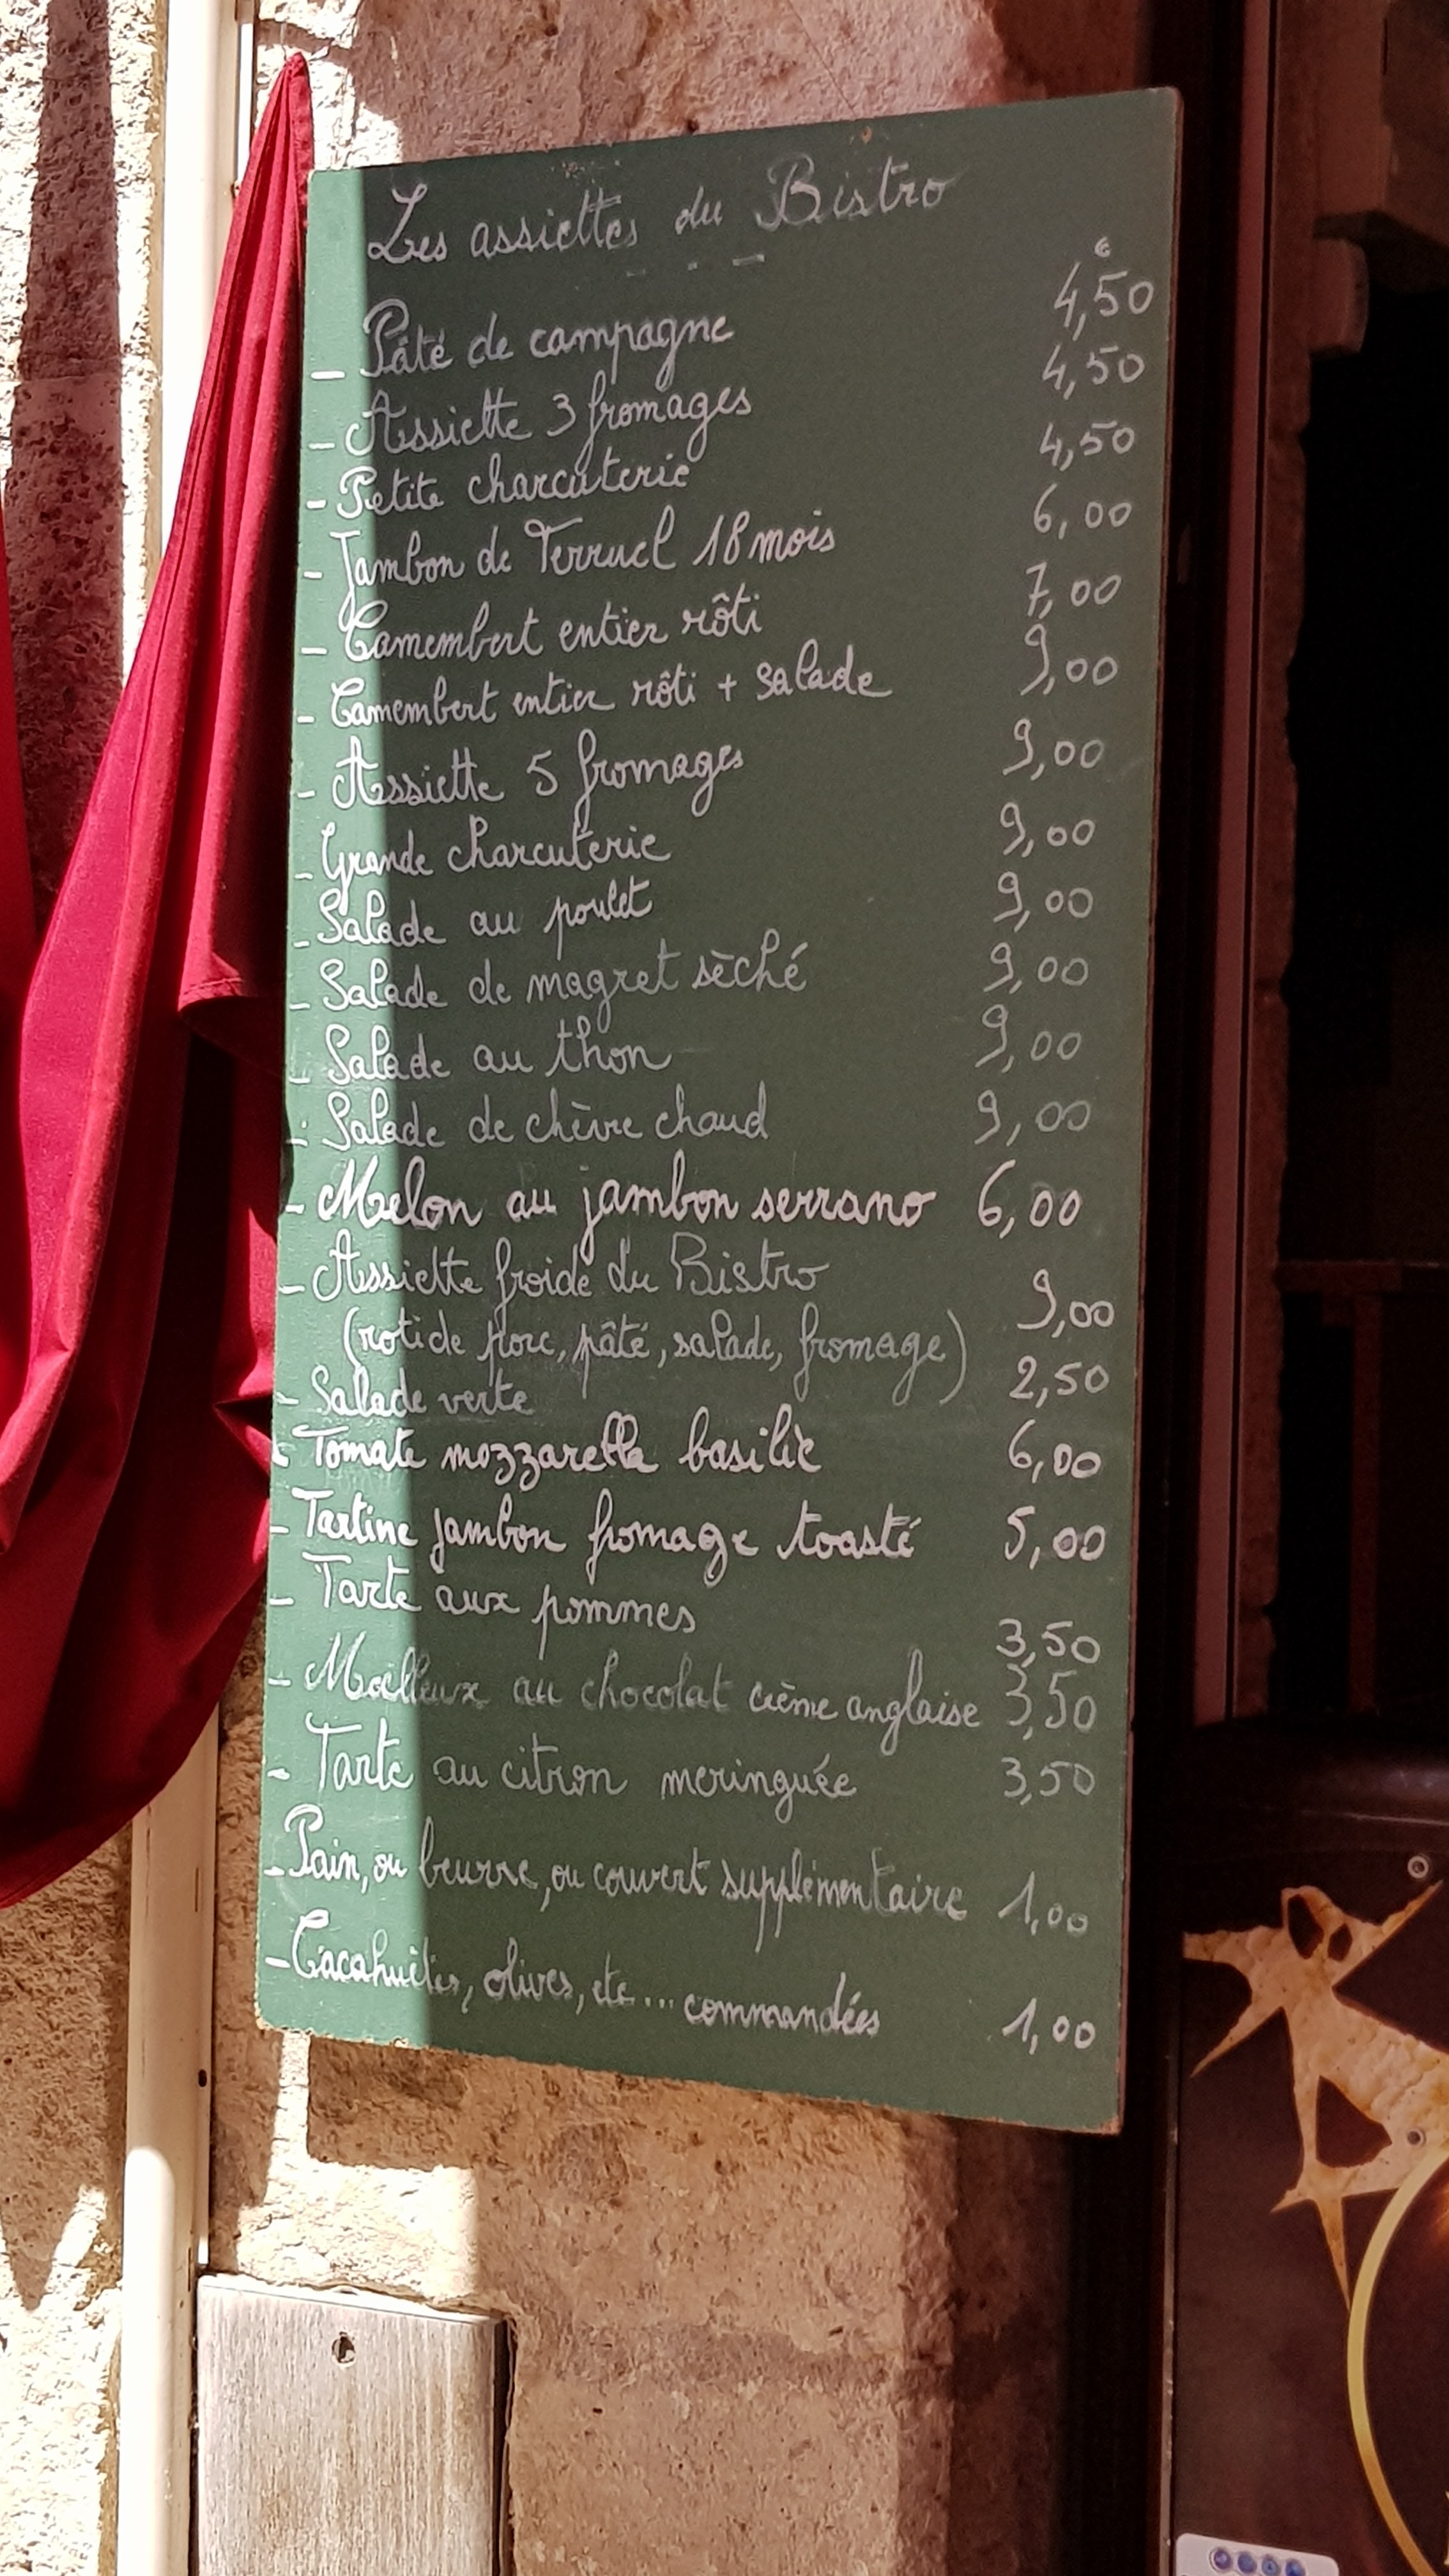 Les assiettes du Bistro
€
- Pâté de campagne 4,50
- Assiette 3 fromages 4,50
- Petite charcuterie 4,50
- Jambon de Terruel 18 mois 6,00
- Camembert entier rôti 7,00
- Camembert entier rôti + salade 9,00
- Assiette 5 fromages 9,00
- Grande charcuterie 9,00
- Salade au poulet 9,00
- Salade de magret sèché 9,00
- Salade au thon 9,00
- Salade de chèvre chaud 9,00
- Melon au jambon serrano 6,00
- Assiette froide du Bistro
(roti de porc, pâté, salade, fromage) 9,00
- Salade verte 2,50
- Tomate mozzarella basilic 6,00
- Tartine jambon fromage toasté 5,00
- Tarte aux pommes 3,50
- Moelleux au chocolat crème anglaise 3,50
- Tarte au citron meringuée 3,50
- Pain, ou beurre, ou couvert supplémentaire 1,00
- Cacahuètes, olives, etc... commandées 1,00